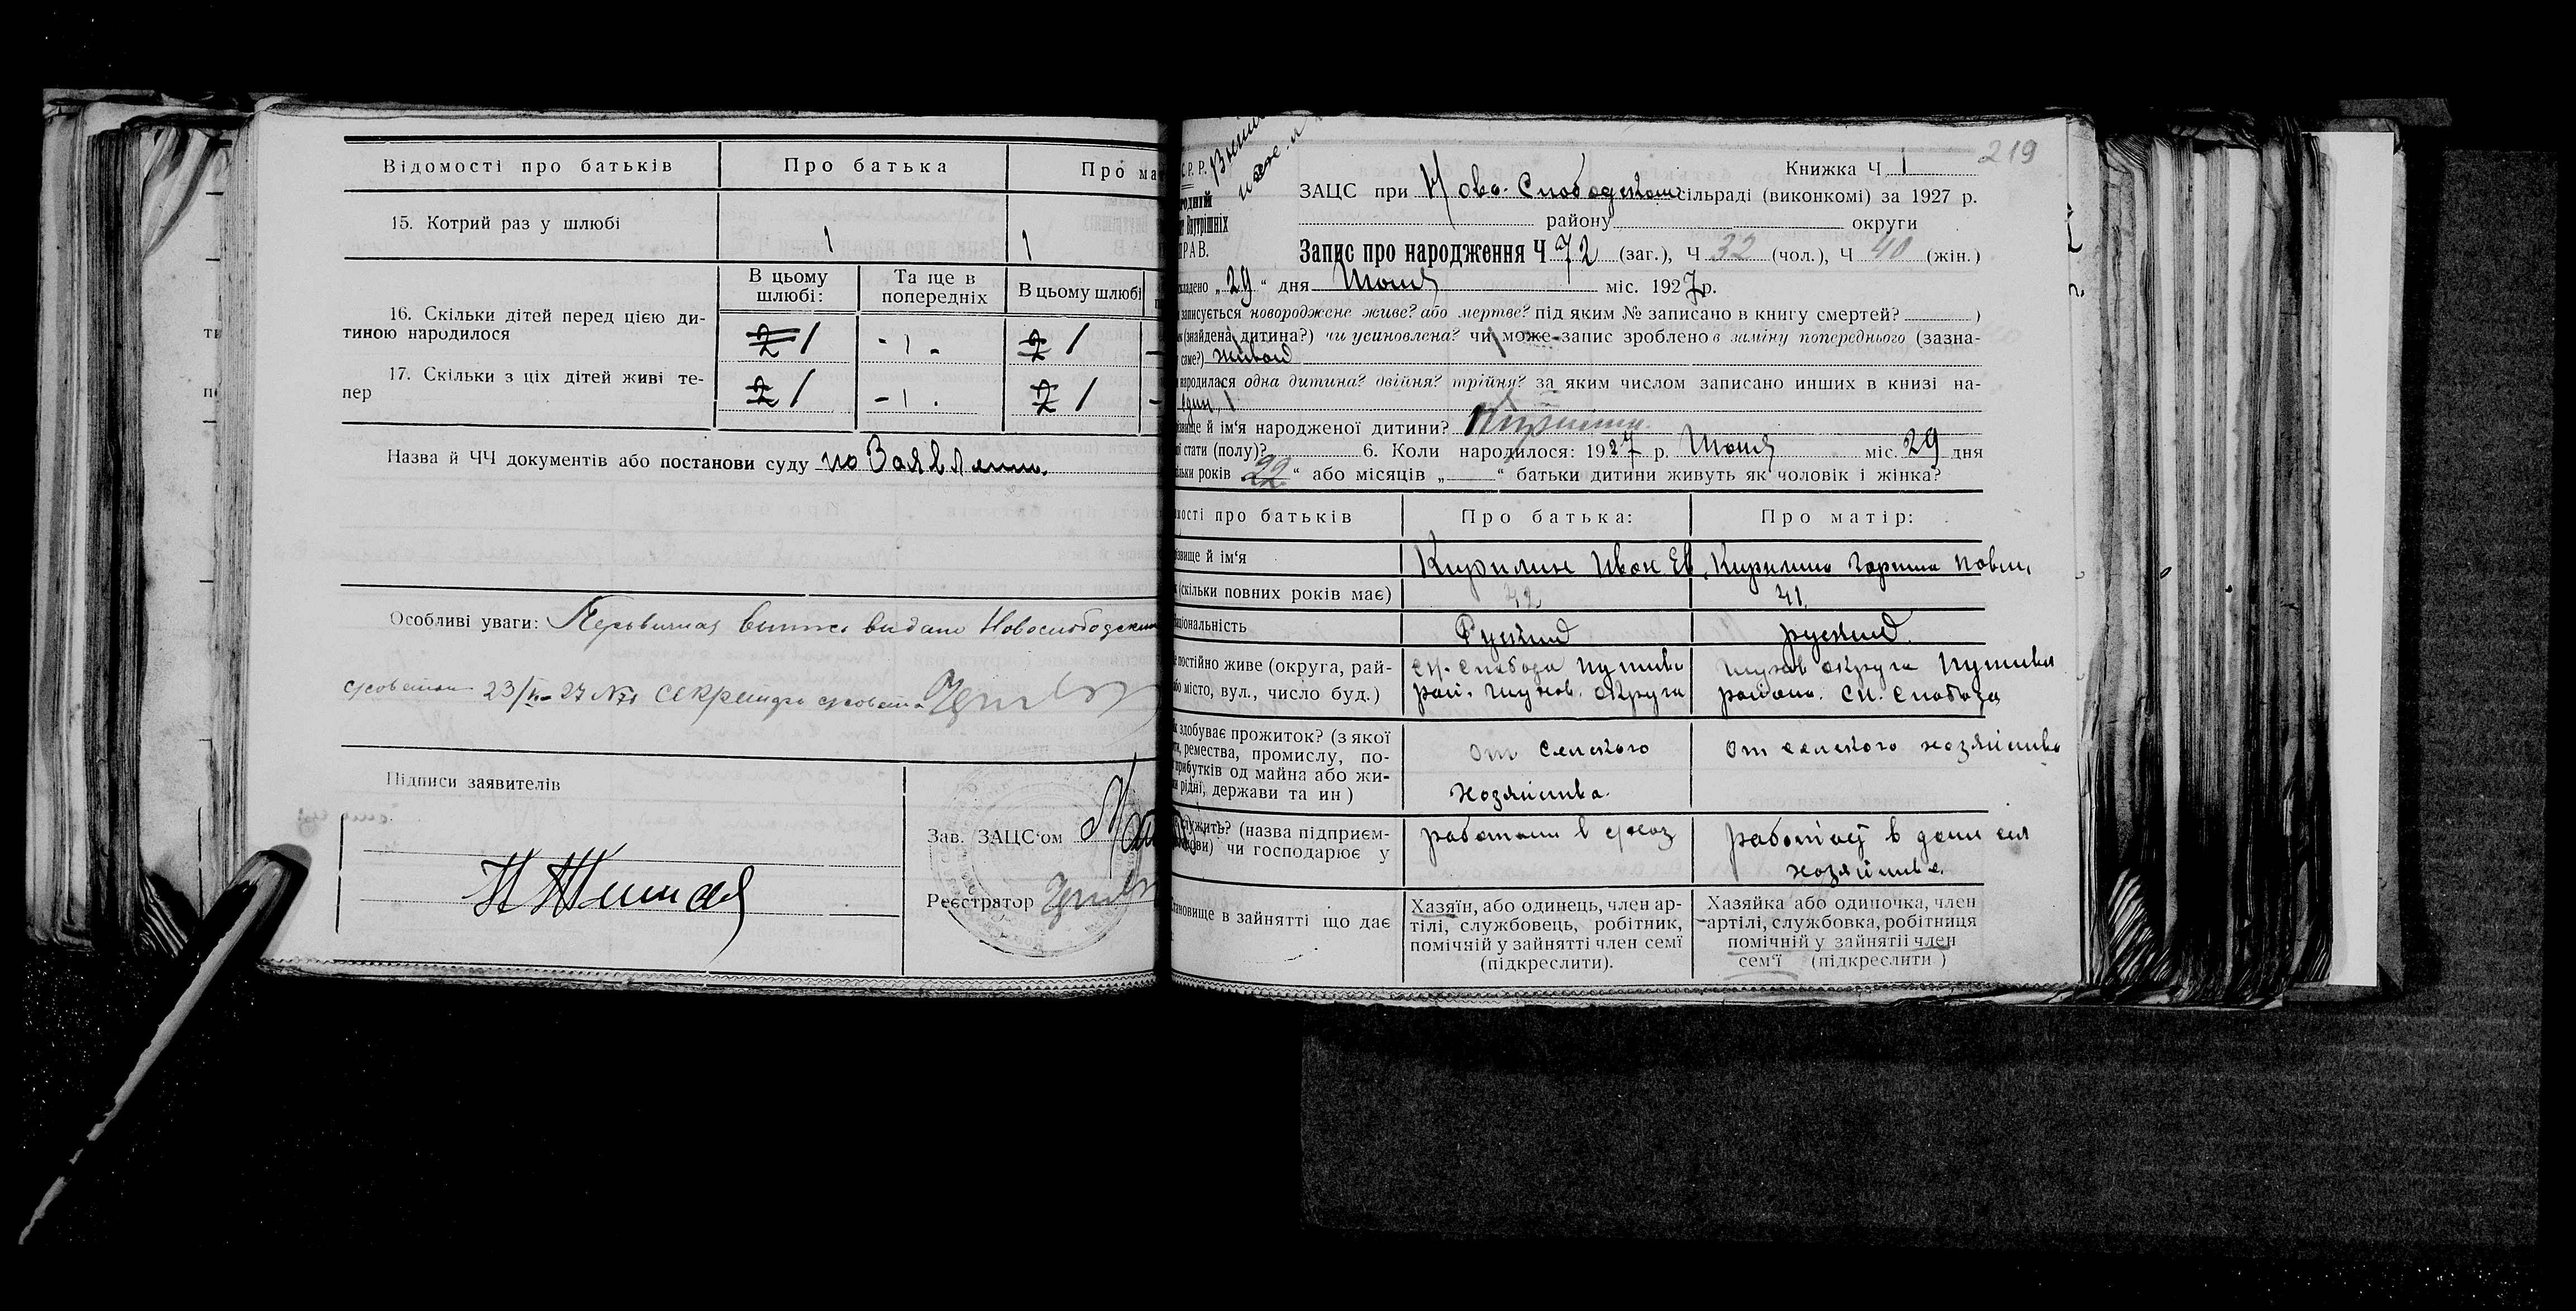 Відомості про батьків
Про батька
Про ма
15. Котрий раз у шлюбі
1
1
В цьому шлюбі:
Та ще в попередніх
В цьому шлюбі
16. Скільки дітей перед цією ди-
тиною народилося
2 1
- 1 -
2 1
17. Скільки з ціх дітей живі те-
пер
2 1
- 1 .
2 1
Назва й ЧЧ документів або постанови суду по Заявлению
Особливі уваги: Первичная выпись видано Новослободским
23/ 27 №71 секретарь
Підписи заявителів
Зав. ЗАЦС'ом
Реєстратор
219
С.Р.Р.
одний
Внутрішніх
ПРАВ.
Книжка Ч 1
ЗАЦС при Ново-Слободском сільраді (виконкомі) за 1927 р.
району округи
Запис про народження Ч 72 (заг.), Ч 32 (чол.), Ч 40 (жін.)
кладено „29“ дня Июня міс. 1927 р.
записується новороджене живе? або мертве? під яким № записано в книгу смертей? )
(знайдена дитина?) чи усиновлена? чи може запис зроблено в заміну попереднього (зазна-
саме?) живой
народилася одна дитина? двійня? трійня? за яким числом записано инших в книзі на-
звище й ім'я народженої дитини?
стати (полу)? 6. Коли народилося: 1927 р. Июня міс. 29 дня
льки років 22“ або місяців „ “ батьки дитини живуть як чоловік і жінка?
мості про батьків
Про батька:
Про матір:
звище й ім'я
Кирилин Иван Ев.
Кирилина Павл.
(скільки повних років має)
42
41
ціональність
Руский
руский
постійно живе (округа, рай-
або місто, вул., число буд.)
Сн. Слобода Путивл
рай. Глухов. округа
Глухов округа Путивл
района. Сн. Слобода
здобуває прожиток? (з якої
ремества, промислу, по-
прибутків од майна або жи-
рідні, держави та ин)
от селского
хозяйства
от селского хозяйства
служить? (назва підприєм-
чи господарює у
работает в
работает в доми сел
хозяйстве
тановище в зайнятті що дає
Хазяїн, або одинець, член ар-
тілі, службовець, робітник,
помічній у зайнятті член семї
(підкреслити).
Хазяйка або одиночка, член
артілі, службовка, робітниця
помічній у зайнятії член
сем'ї (підкреслити)